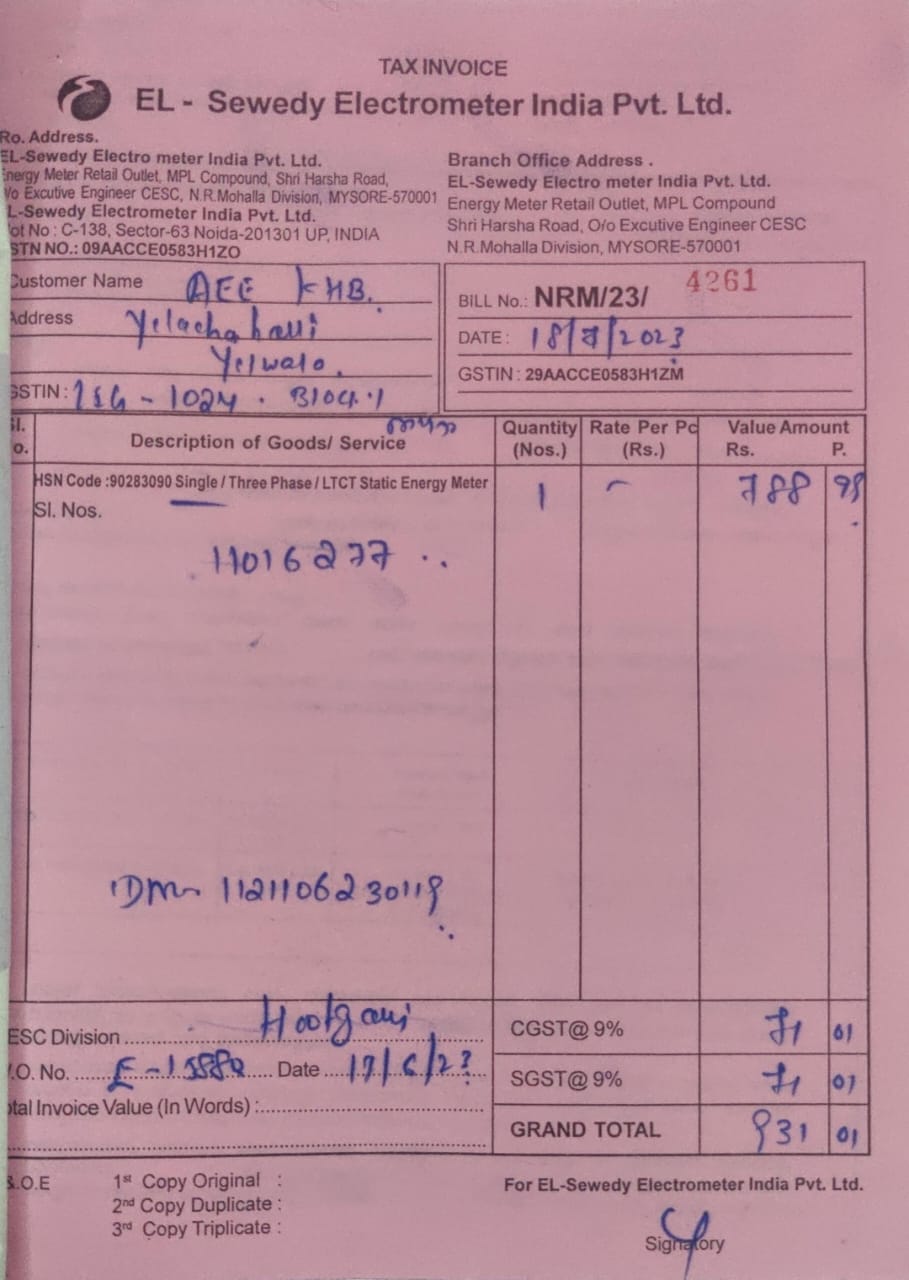 TAX INVOICE
EL - Sewedy Electrometer India Pvt. Ltd.
Ro. Address.
EL-Sewedy Electro meter India Pvt. Ltd.
Energy Meter Retail Outlet, MPL Compound, Shri Harsha Road,
/o Excutive Engineer CESC, N.R.Mohalla Division, MYSORE-570001
L-Sewedy Electrometer India Pvt. Ltd.
ot No : C-138, Sector-63 Noida-201301 UP, INDIA
STN NO.: 09AACCE0583H1ZO
Branch Office Address .
EL-Sewedy Electro meter India Pvt. Ltd.
Energy Meter Retail Outlet, MPL Compound
Shri Harsha Road, O/o Excutive Engineer CESC
N.R.Mohalla Division, MYSORE-570001
Customer Name AEE KHB.
Address Yelachahalli
Yelwala.
GSTIN :
BILL No.: NRM/23/ 4261
DATE : 18/ /2023
GSTIN : 29AACCE0583H1ZM
Sl. No. Description of Goods/ Service Quantity (Nos.) Rate Per Pc (Rs.) Value Amount Rs. P.
HSN Code :90283090 Single / Three Phase / LTCT Static Energy Meter 1 - 788 98
Sl. Nos.
11016277 ..
1121106230119
ESC Division Hootgalli CGST@ 9% 71 01
.O. No. Date 17/6/23 SGST@ 9% 71 01
tal Invoice Value (In Words) :
GRAND TOTAL 931 01
&.O.E 1st Copy Original :
2nd Copy Duplicate :
3rd Copy Triplicate :
For EL-Sewedy Electrometer India Pvt. Ltd.
Signatory